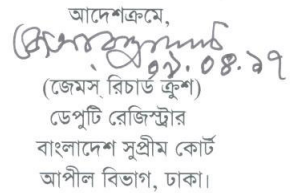 আদেশক্রমে,
০৯.০৪.১৭
(জেমস্ রিচার্ড ক্রুশ)
ডেপুটি রেজিস্ট্রার
বাংলাদেশ সুপ্রীম কোর্ট
আপীল বিভাগ, ঢাকা।